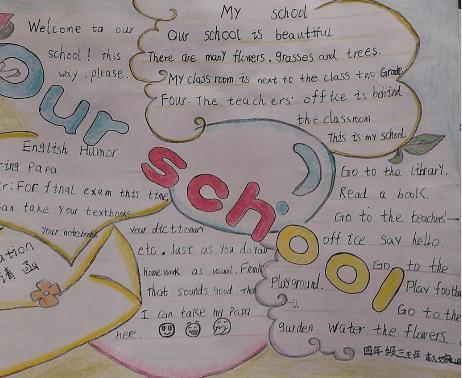 Welcome to our
school! this
way, please.
My school
Our school is beautiful.
There are many flowers, grasses and trees.
My class room is next to the class two Grade
Four. The teachers' office is behind
the classroom
This is my school.
Our
school
English Humor
ring Papa
r: For final exam this time,
an take your textbooks
your notebooks
your dictionary
etc. Just as you do your
homework as usual.
That sounds good.
I can take my Papa
here.
ation
请函
Go to the library.
Read a book.
Go to the teachers'
office. Say hello.
Go to the
Playground.
Play footb
Go to the
garden. Water the flowers.
四年级三班